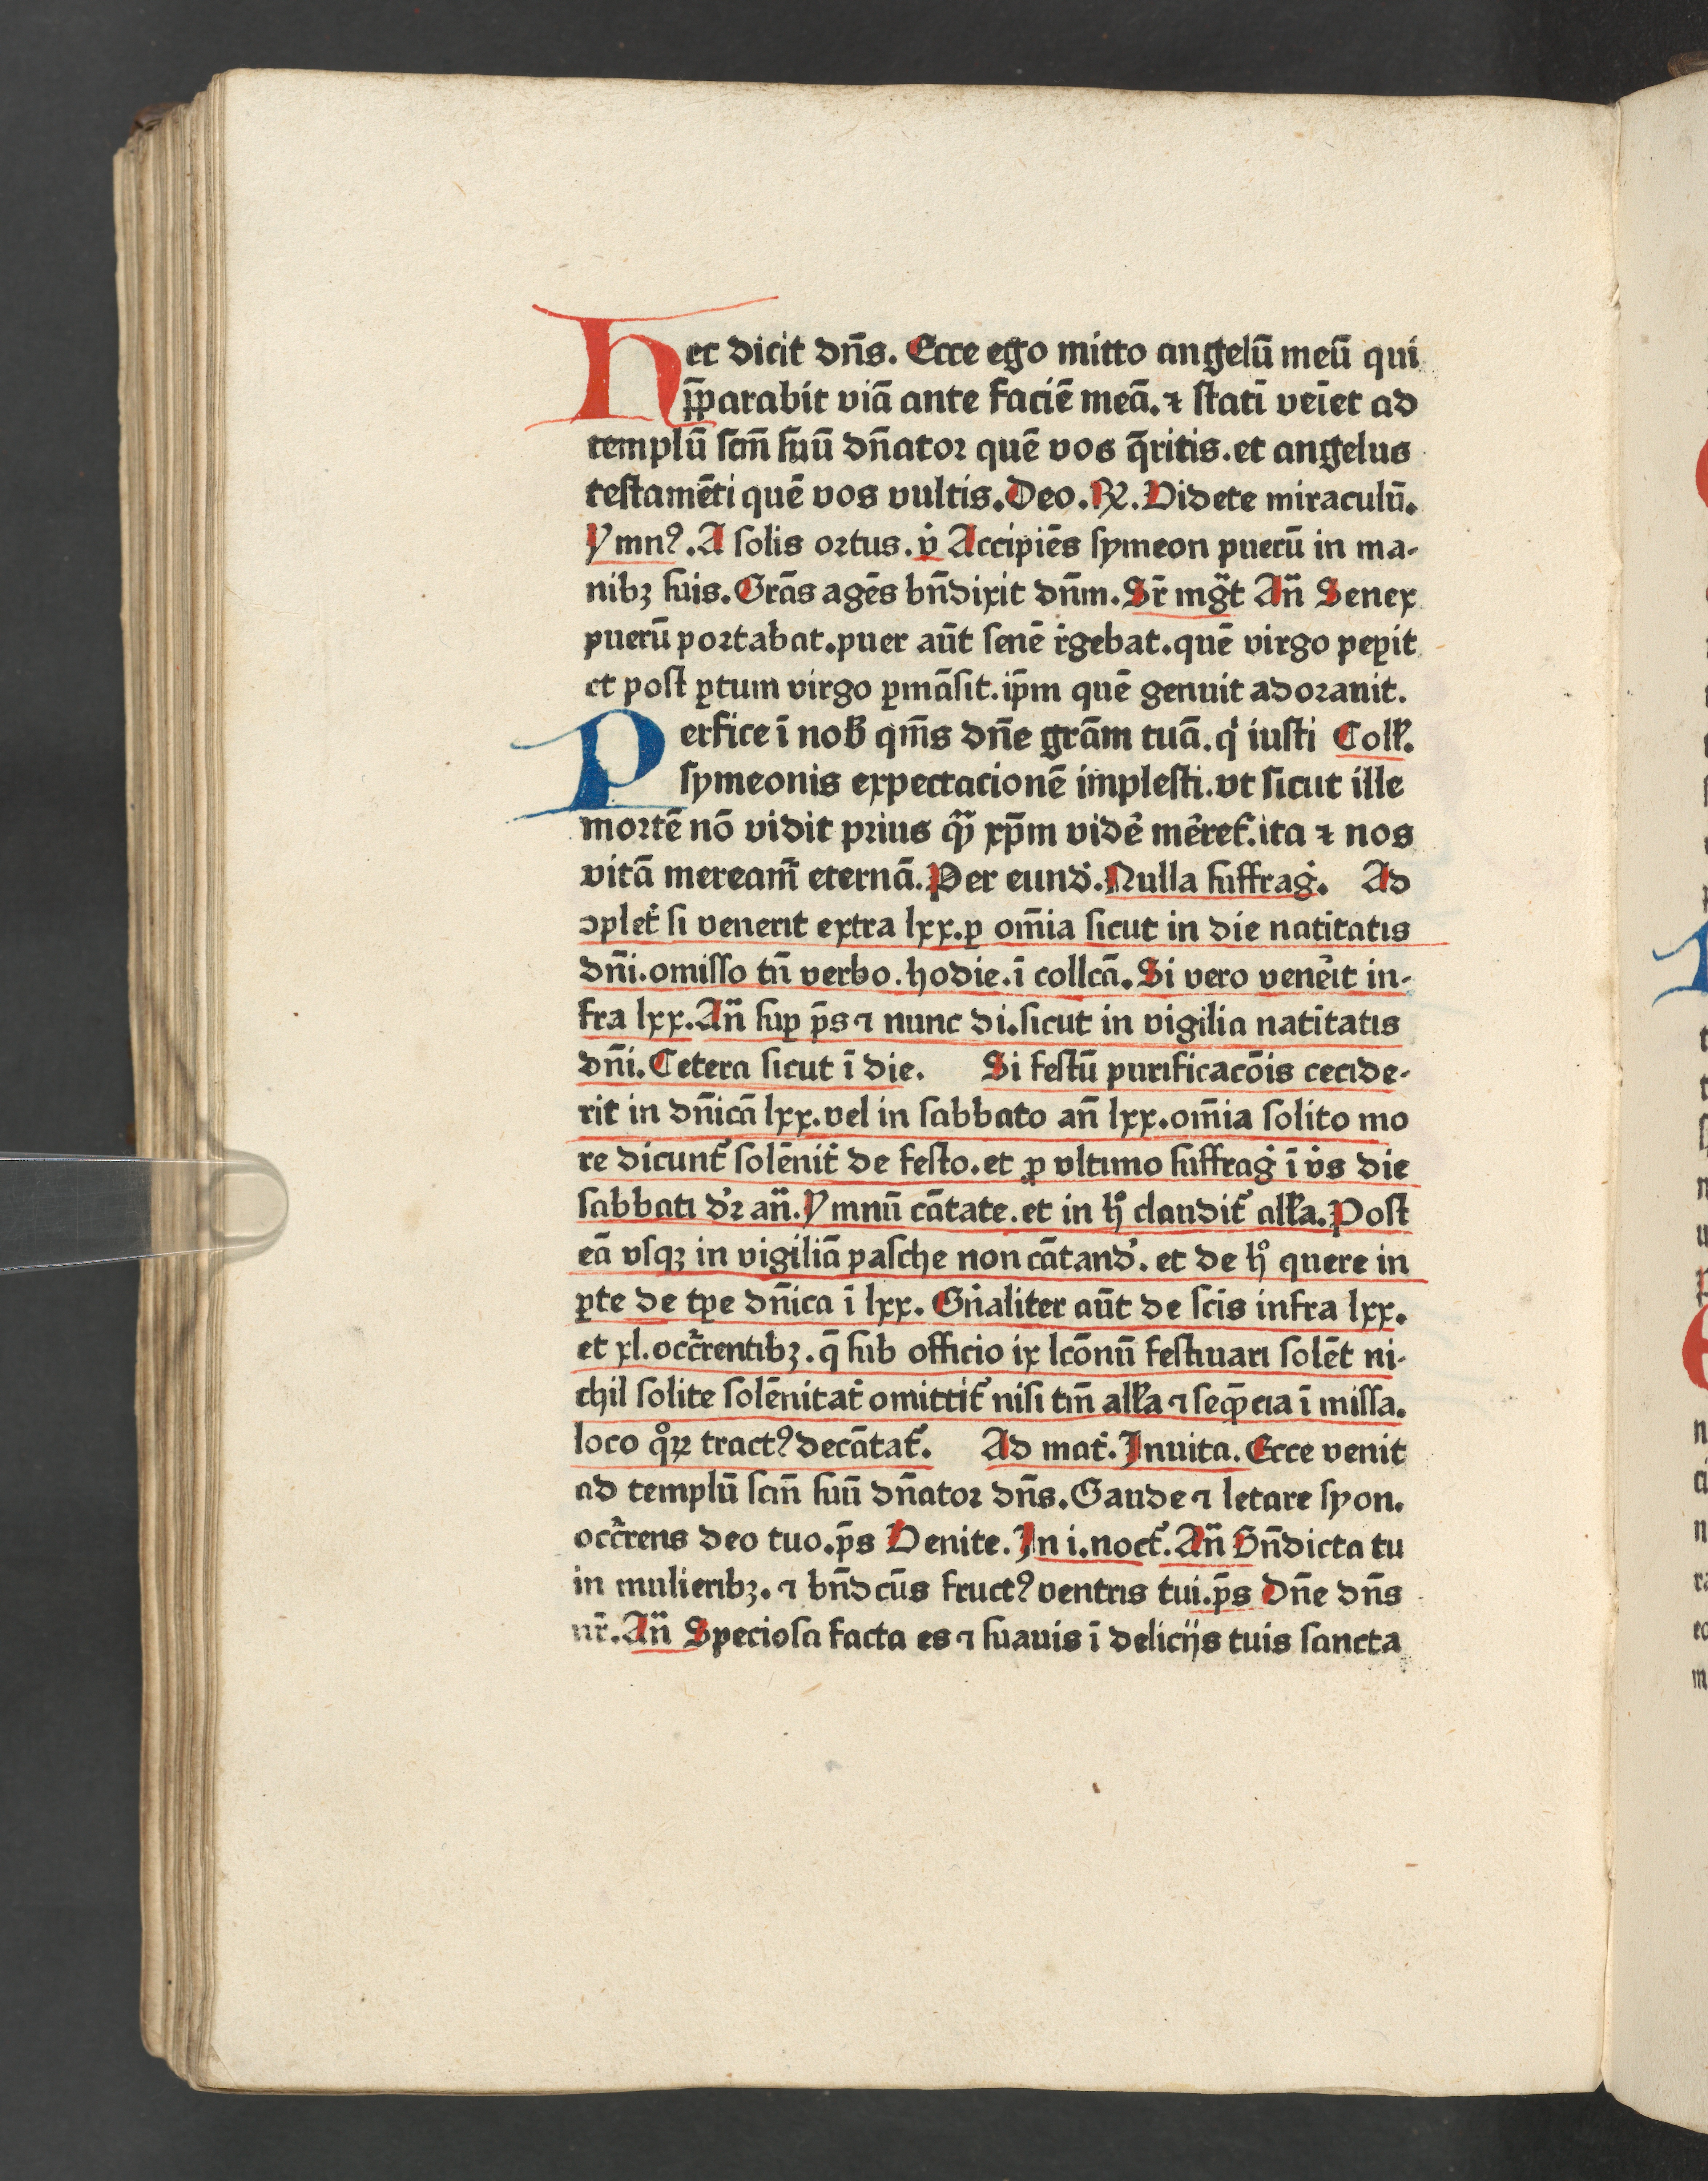 Hec dicit dn̄s. Ecce ego mitto angelū meū qui
p̄parabit viā ante faciē meā. ⁊ statī veīet ad
templū scm̄ suū dn̄ator quē vos q̄ritis. et angelus
testamēti quē vos vultis. Deo. ℟. Videte miraculū.
Ymnꝰ. A solis ortus. v̇ Accipiēs symeon puerū in ma-
nibꝫ suis. Grās agēs bn̄dixit dn̄m. Sr̄ mg̈t An̄ Senex
puerū portabat. puer aūt senē r̔gebat. quē virgo peꝑit
et post ꝑtum virgo ꝑmāsit. ip̄m quē genuit adorauit.
Perfice ī nob̄ qm̄s dn̄e grām tuā. q̇ iusti Coll̄.
symeonis expectacionē implesti. vt sicut ille
mortē nō vidit prius qᷓ xp̄m vidē̔ mēret̄. ita ⁊ nos
vitā mereamr̄ eternā. Per eund̔. Nulla suffrag̔. Ad
ↄplet̔ si venerit extra lxx. ꝑ om̄ia sicut in die natitatis
dn̄i. omisso tn̄ verbo. hodie. ī collcā. Si vero vene̔it in-
fra lxx. An̄ suꝑ p̄s ⁊ nunc di. sicut in vigilia natitatis
dn̄i. Cetera sicut ī die. Si festū purificacōis cecide-
rit in dn̄icā lxx. vel in sabbato an̄ lxx. om̄ia solito mo
re dicunt̄ solēnit̔ de festo. et ꝓ vltimo suffrag̔ ī v̔s die
sabbati d̔r an̄. Ymnū cātate. et in hͦ claudit̄ all̄a. Post
eā vsqꝫ in vigiliā pasche non cātand̔. et de hͦ quere in
ꝑte de tꝑe dn̄ica ī lxx. Gn̔aliter aūt de scīs infra lxx.
et xl. occr̄rentibꝫ. q̄ sub officio ix lcōnū festiuari solēt ni-
chil solite solēnitat̔ omittit̄ nisi tm̄ all̄a ⁊ seqn̄cia ī missa.
loco qͦꝝ tractꝰ decātat̄. Ad mat̔. Inuita. Ecce venit
ad templū scm̄ suū dn̄ator dn̄s. Gaude ⁊ letare syon.
occr̄rens deo tuo. p̄s Venite. In i. noct̄. An̄ Bn̄dicta tu
in mulieribꝫ. ⁊ bn̄dcūs fructꝰ ventris tui. p̄s Dn̄e dn̄s
nr̄. An̄ Speciosa facta es ⁊ suauis ī delicijs tuis sancta